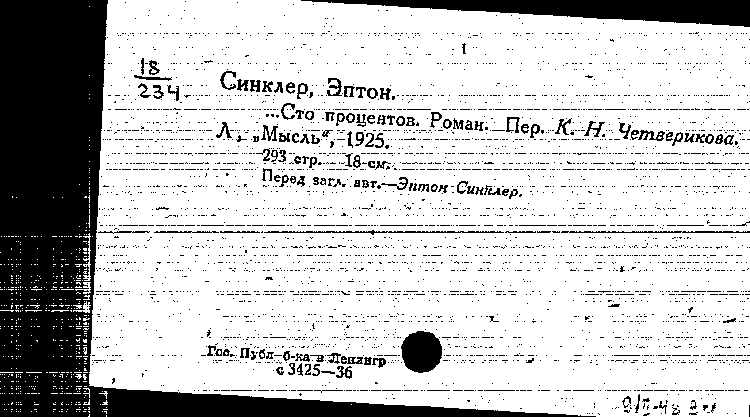 1
18
234
Синклер, Эптон.
...Сто процентов. Роман. Пер. К. Н. Четверикова.
Л., „Мысль“, 1925.
293 стр. 18 см.
Перед загл. авт.—Эптон Синклер.
Гос. Публ б-ка в Ленингр
с 3425—36